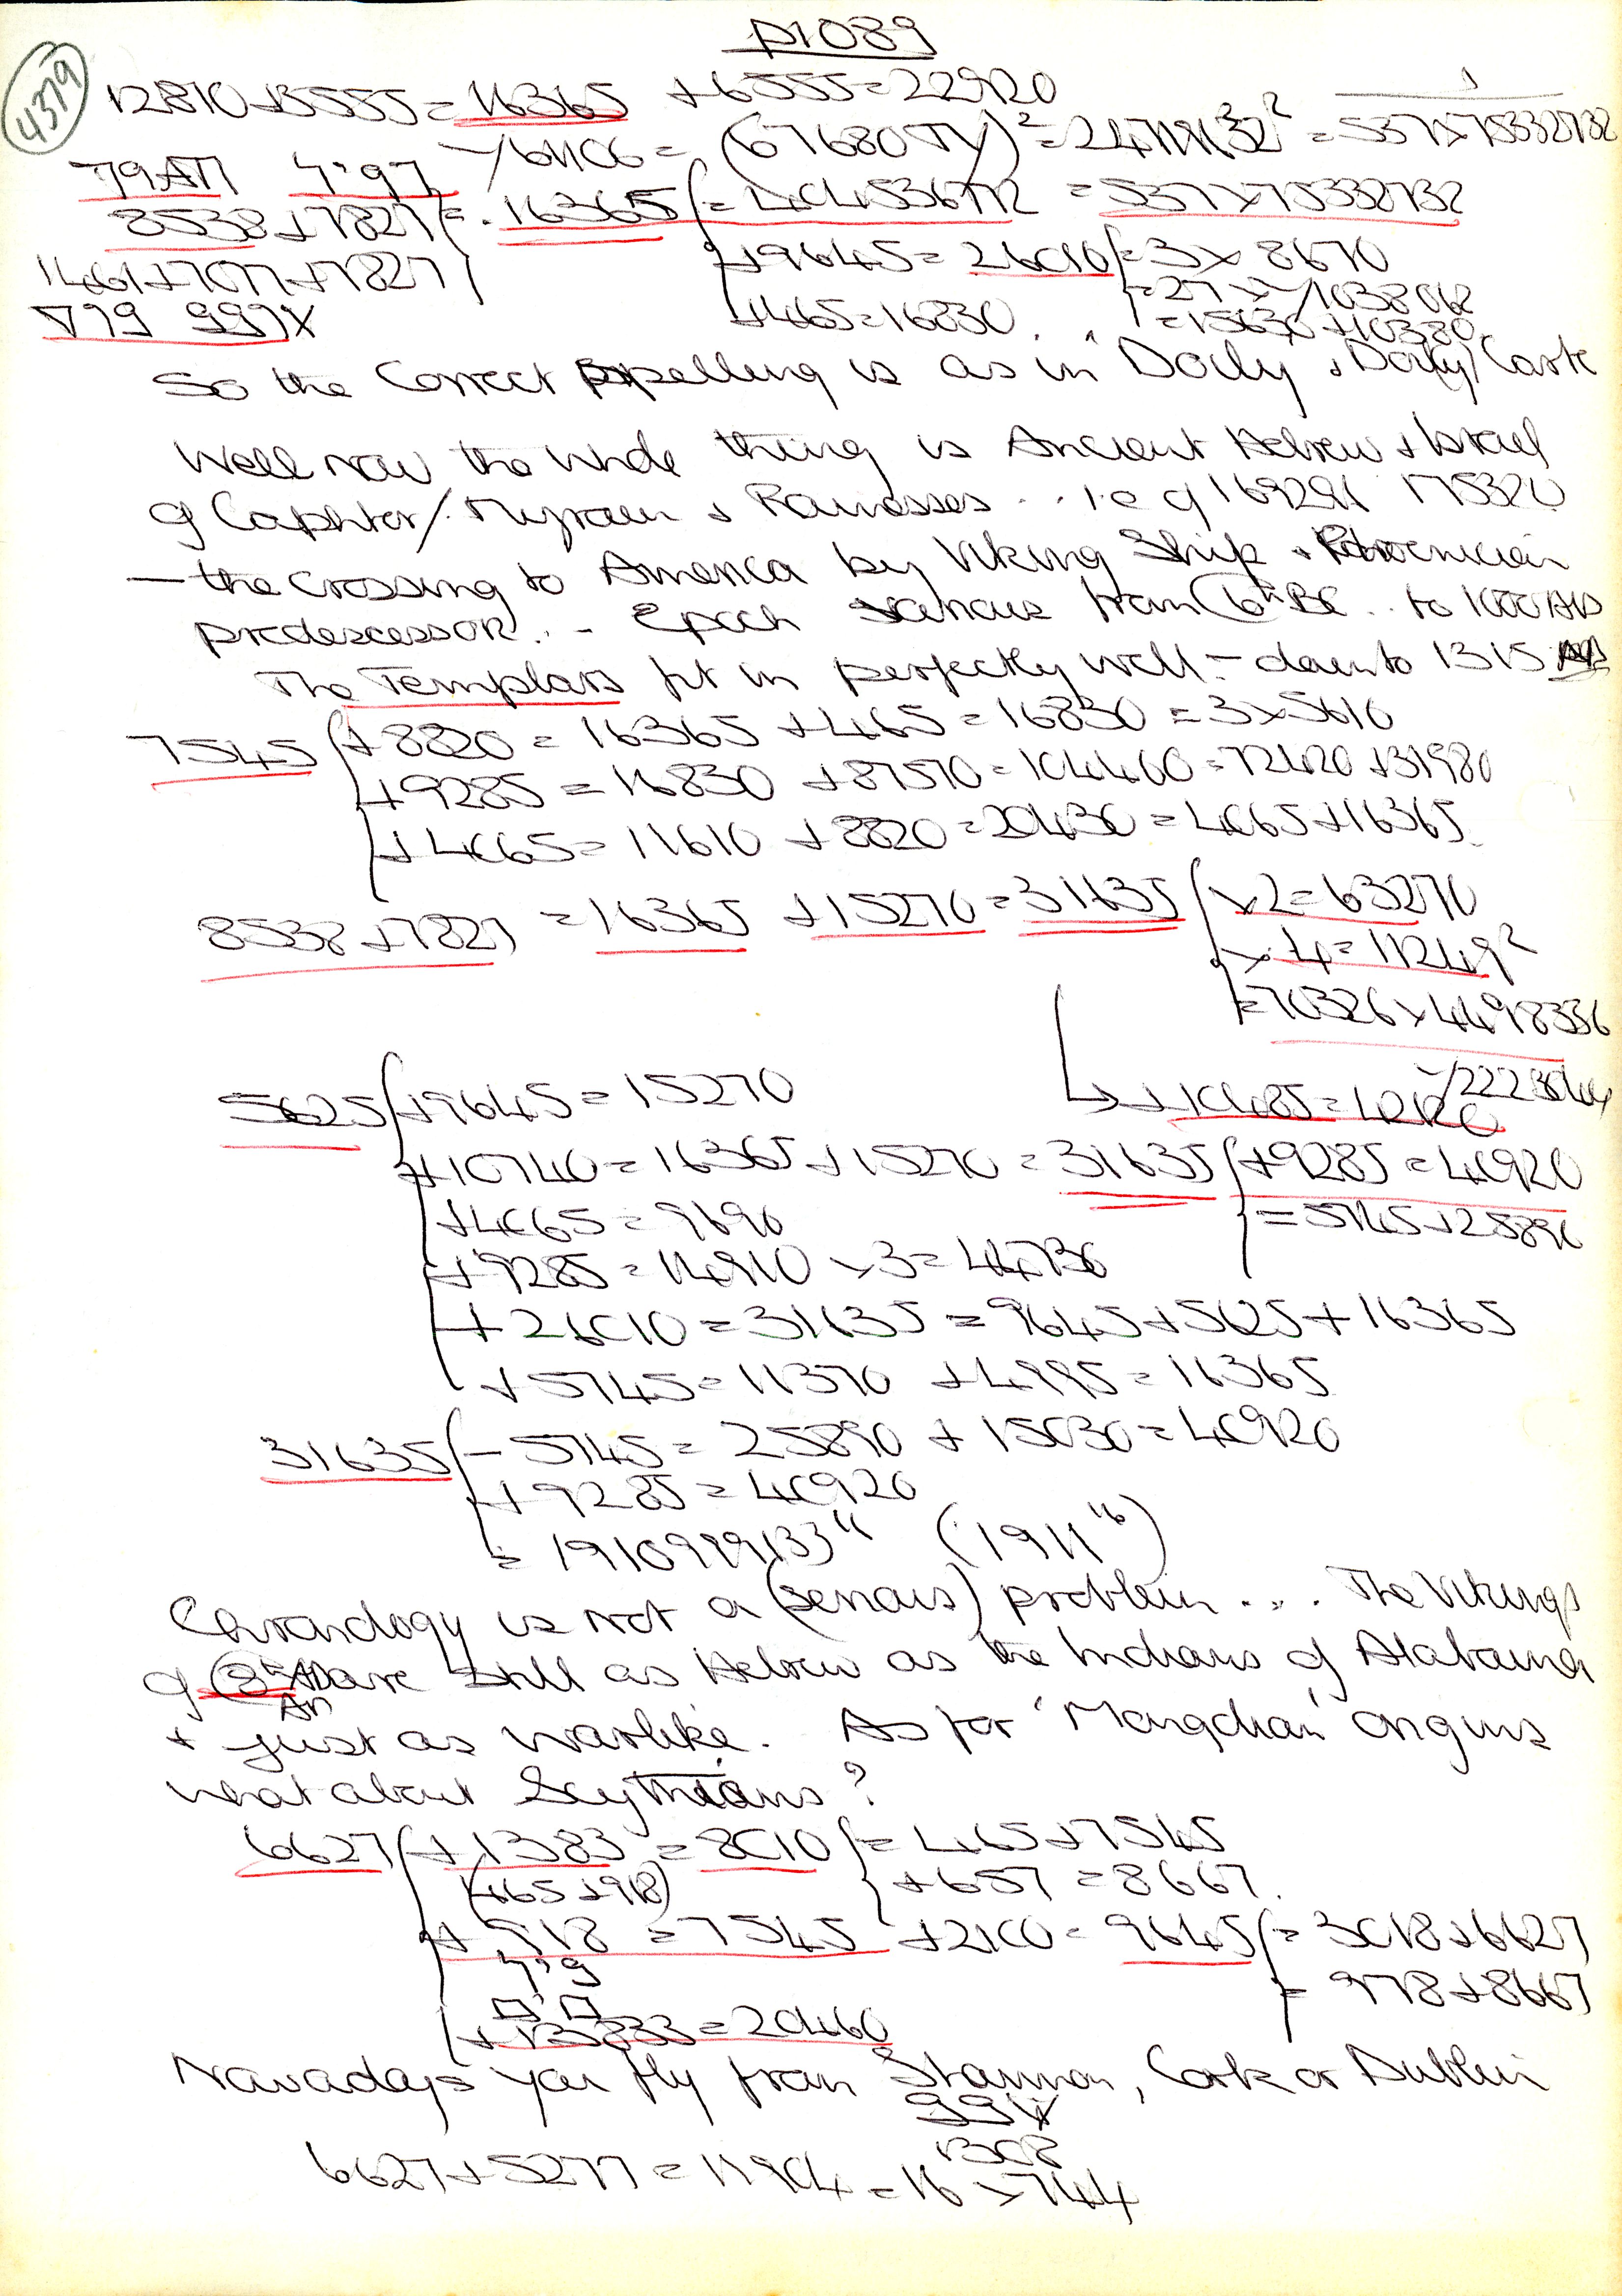 p1089
4379
12810+3555=16365 +6555=22920
8538+7827 = 16365 = 537×75332732
+9645=26010 =3×8670
1461+7077+7827
+465=16830 =15630+10380
So the Correct spelling is as in Doily & Doyly Carte
Well now the whole thing is Ancient Hebrew + Israel
of Caphtor/ Mizraim & Ramesses . . i.e of 169291 175320
— the crossing to America by Viking Ship & Phoenician
predescessor . . – Epoch various from 6th BC .. to 1000 AD
The Templars fit in perfectly well – down to 1315 AD
7545 +8820 = 16365 +465 = 16830 = 3×5610
+9285 = 16830 +87570=104400=72420+31980
+4065= 11610 +8820=20430=4065+16365
8538+7827 =16365 +15270=31635 ×2=63270
×4=11249²
=70326×4498336
5625 +9645=15270
+10740=16365+15270=31635 +9285=40920
+4065=9690 =5745+25890
+9285=14910 ×3=44730
+26010=31635=9645+5625+16365
+5745=11370 +4995=16365
31635 –5745=25890+15030=40920
+9285=40920
Chronology is not a (serious) problem . . . The Vikings
of 8th AD are still as Hebrew as the Indians of Alabama
AD
+ just as warlike. As for 'Mongolian' origins
what about Scythians?
6627 +1383 =8010 =465+7545
(465+918) +657 =8667.
+918 =7545 +2100=9645 =3018+6627
=978+8667
+13833=20460
Nowadays you fly from Shannon, Cork or Dublin
1308
6627+5277=11904=16×744